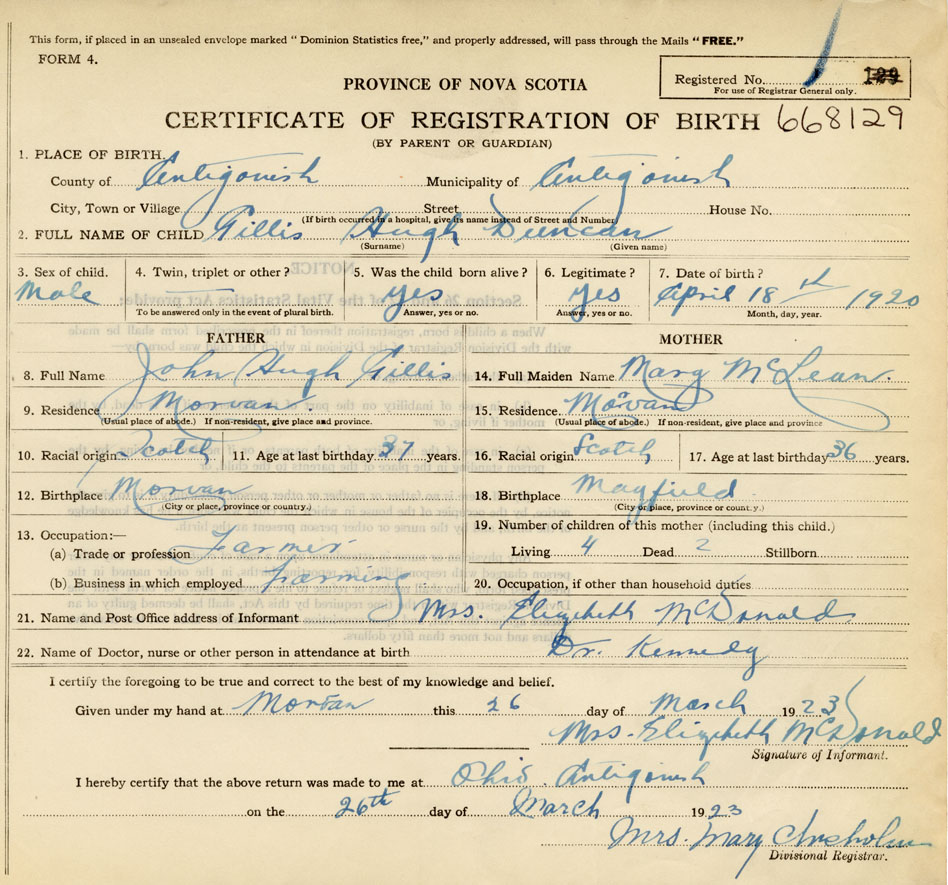 This form, if placed in an unsealed envelope marked "Dominion Statistics free," and properly addressed, will pass through the Mails "FREE."
FORM 4.
Registered No. 129
For use of Registrar General only.
PROVINCE OF NOVA SCOTIA
CERTIFICATE OF REGISTRATION OF BIRTH 668129
(BY PARENT OR GUARDIAN)
1. PLACE OF BIRTH.
County of Antigonish Municipality of Antigonish
City, Town or Village Street House No.
(If birth occurred in a hospital, give its name instead of Street and Number)
2. FULL NAME OF CHILD Gillis Hugh Duncan
(Surname) (Given name)
3. Sex of child. 4. Twin, triplet or other? 5. Was the child born alive? 6. Legitimate? 7. Date of birth?
Male yes yes April 18th 1920
To be answered only in the event of plural birth. Answer, yes or no. Answer, yes or no. Month, day, year.
FATHER MOTHER
8. Full Name John Hugh Gillis 14. Full Maiden Name Mary McLean.
9. Residence Morvan. 15. Residence. Morvan
(Usual place of abode.) If non-resident, give place and province. (Usual place of abode.) If non-resident, give place and province
10. Racial origin Scotch 11. Age at last birthday. 37 years. 16. Racial origin Scotch 17. Age at last birthday 36 years.
12. Birthplace Morvan 18. Birthplace Mayfield
(City or place, province or country.) (City or place, province or count.y.)
13. Occupation:— 19. Number of children of this mother (including this child.)
(a) Trade or profession Farmer Living 4 Dead 2 Stillborn
(b) Business in which employed Farming 20. Occupation, if other than household duties
21. Name and Post Office address of Informant Mrs. Elizabeth McDonald
22. Name of Doctor, nurse or other person in attendance at birth Dr. Kennedy
I certify the foregoing to be true and correct to the best of my knowledge and belief.
Given under my hand at Morvan this 26 day of March 1923
Mrs. Elizabeth McDonald
Signature of Informant.
I hereby certify that the above return was made to me at Ohio. Antigonish
on the 26th day of March 1923
Mrs. Mary Chisholm
Divisional Registrar.